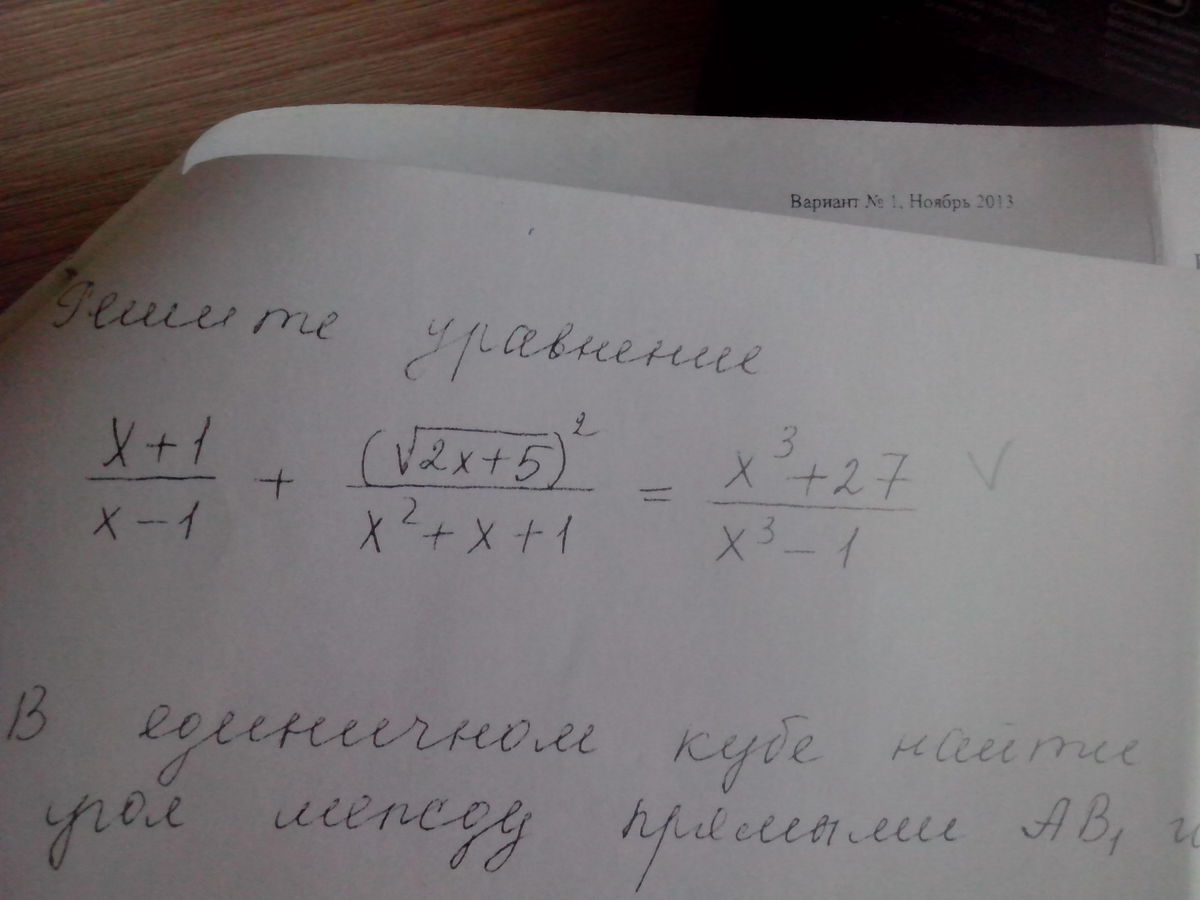 Вариант № 1, Ноябрь 2013
Решите уравнение
\frac{x+1}{x-1} + \frac{(\sqrt{2x+5})^2}{x^2+x+1} = \frac{x^3+27}{x^3-1} √
В единичном кубе найти
угол между прямыми AB₁ и